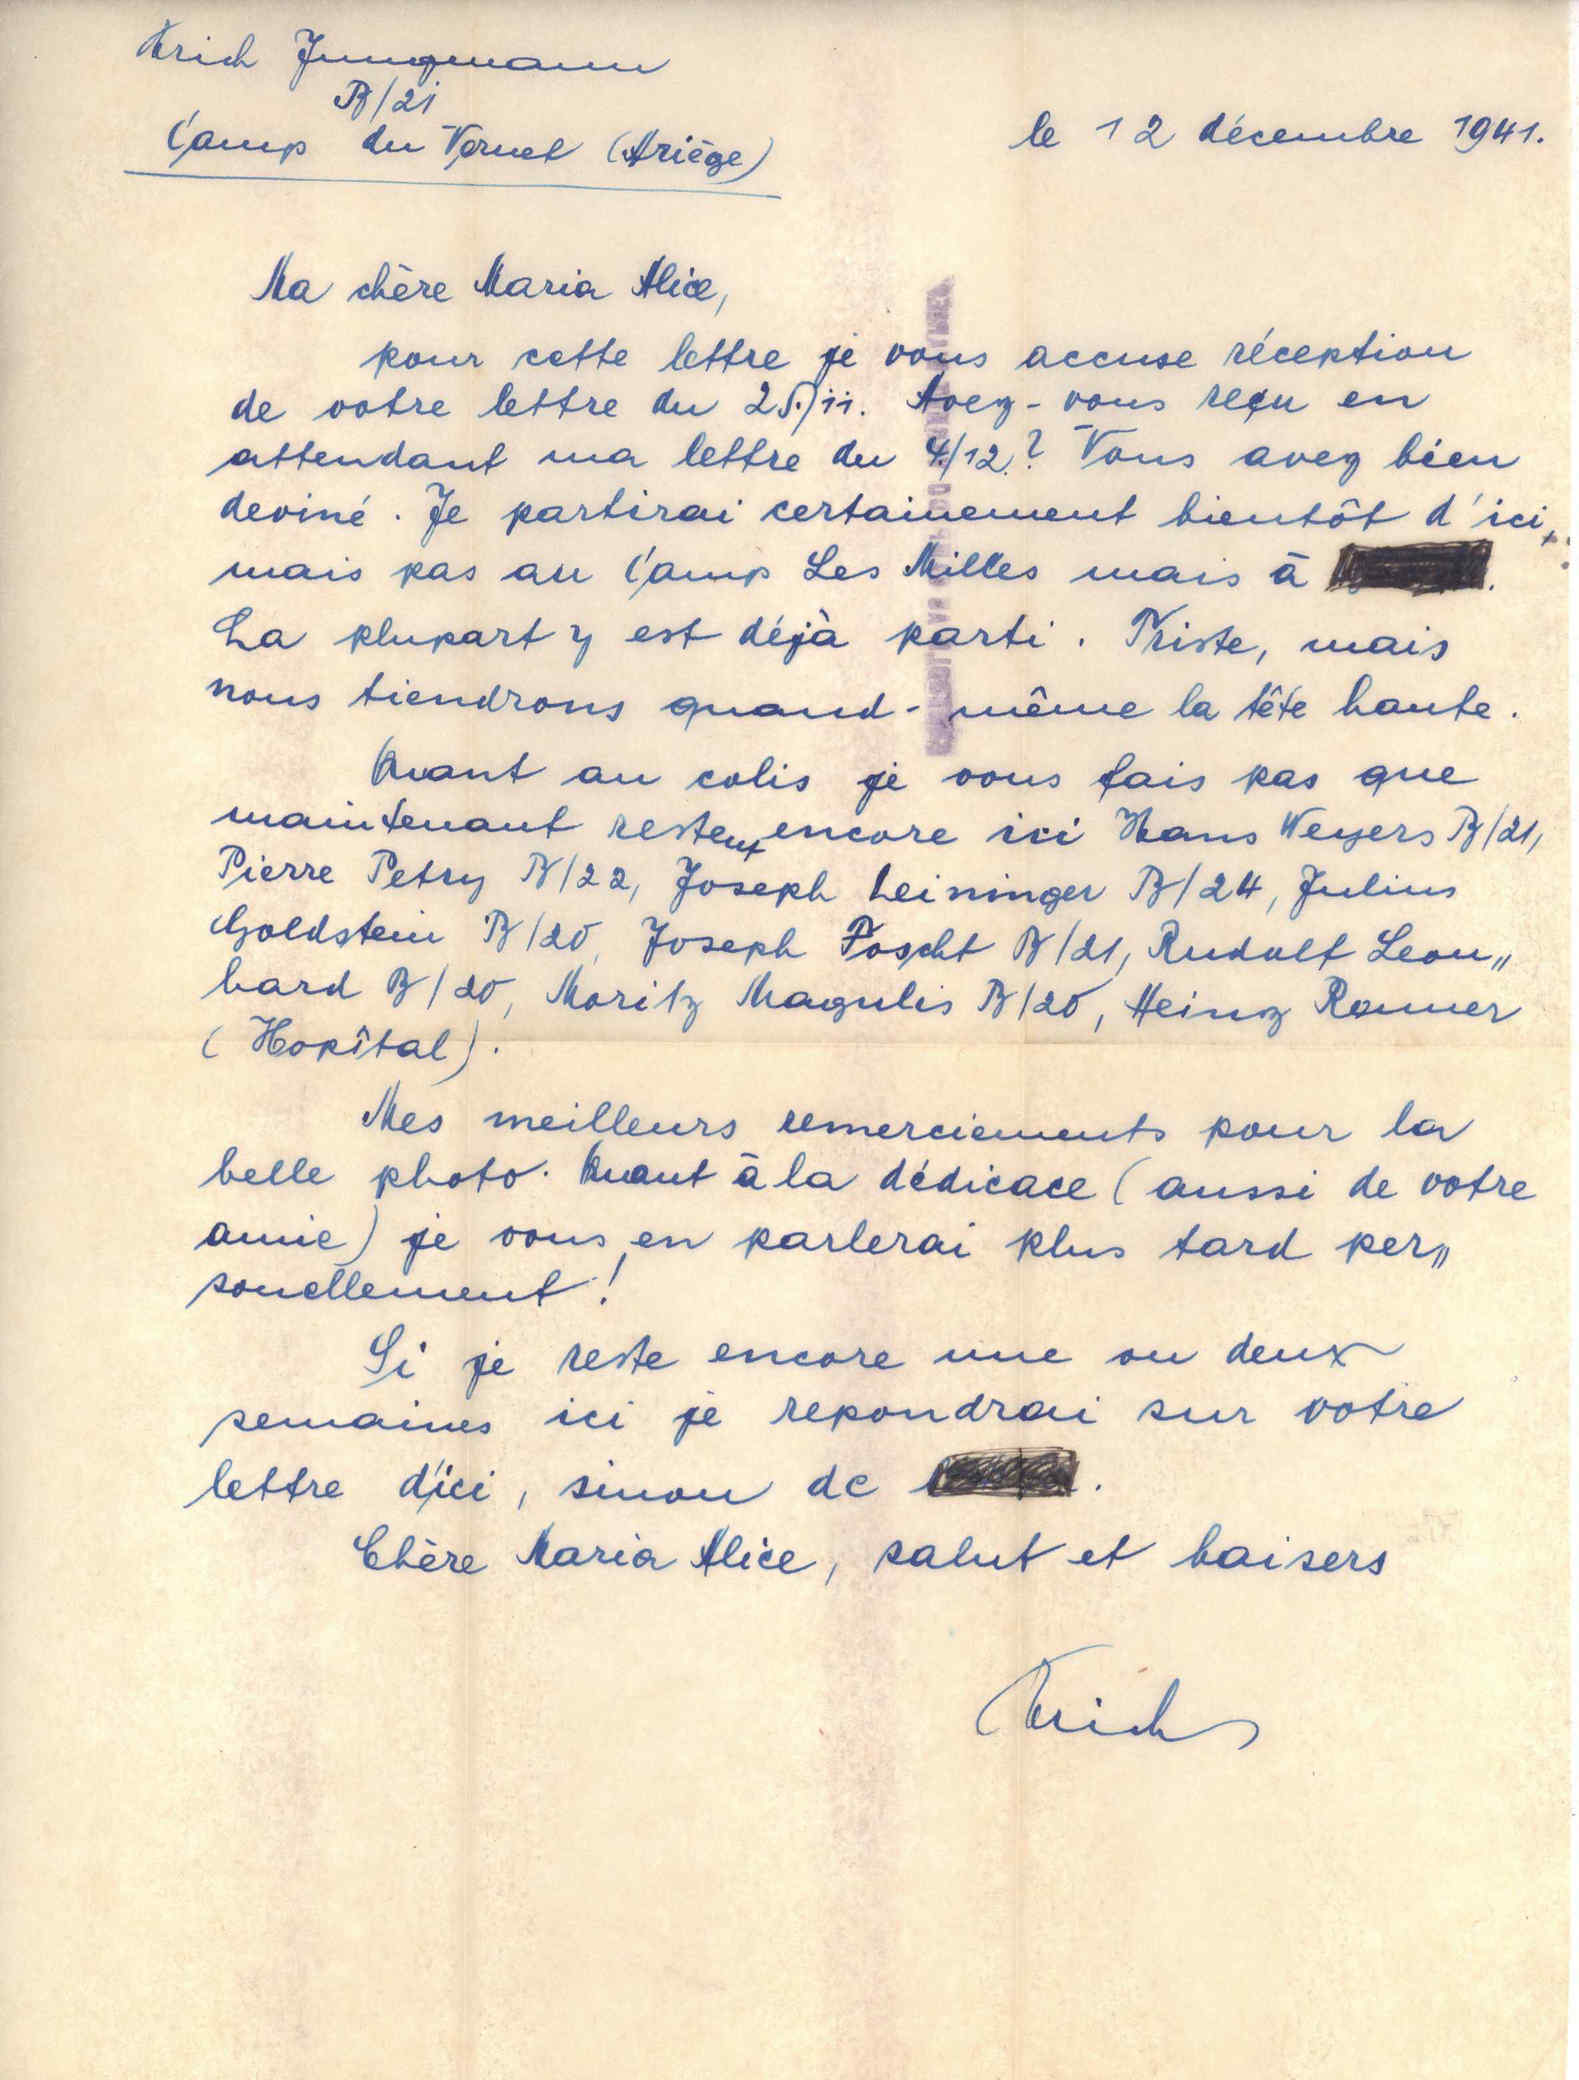 Erich Jungmann
B/21
Camp du Vernet (Ariège)
le 12 décembre 1941.
Ma chère Maria Alice,
pour cette lettre je vous accuse réception
de votre lettre du 25./11. Avez-vous reçu en
attendant ma lettre du 4/12.? Vous avez bien
deviné. Je partirai certainement bientôt d'ici,
mais pas au Camp Les Milles mais à
La plupart y est déjà parti. Triste, mais
nous tiendrons quand-même la tête haute.
Quant au colis je vous fais pas que
maintenant restent encore ici Hans Weyers B/21,
Pierre Petry B/22, Joseph Leininger B/24, Julius
Goldstein B/20, Joseph Foscht B/21, Rudolf Leon„
hard B/20, Moritz Magulis B/20, Heinz Renner
(Hopîtal).
Mes meilleurs remerciements pour la
belle photo. Quant à la dédicace (aussi de votre
amie) je vous en parlerai plus tard per„
sonellement!
Si je reste encore une ou deux
semaines ici je repondrai sur votre
lettre d'ici, sinon de
Chère Maria Alice, salut et baisers
Erich